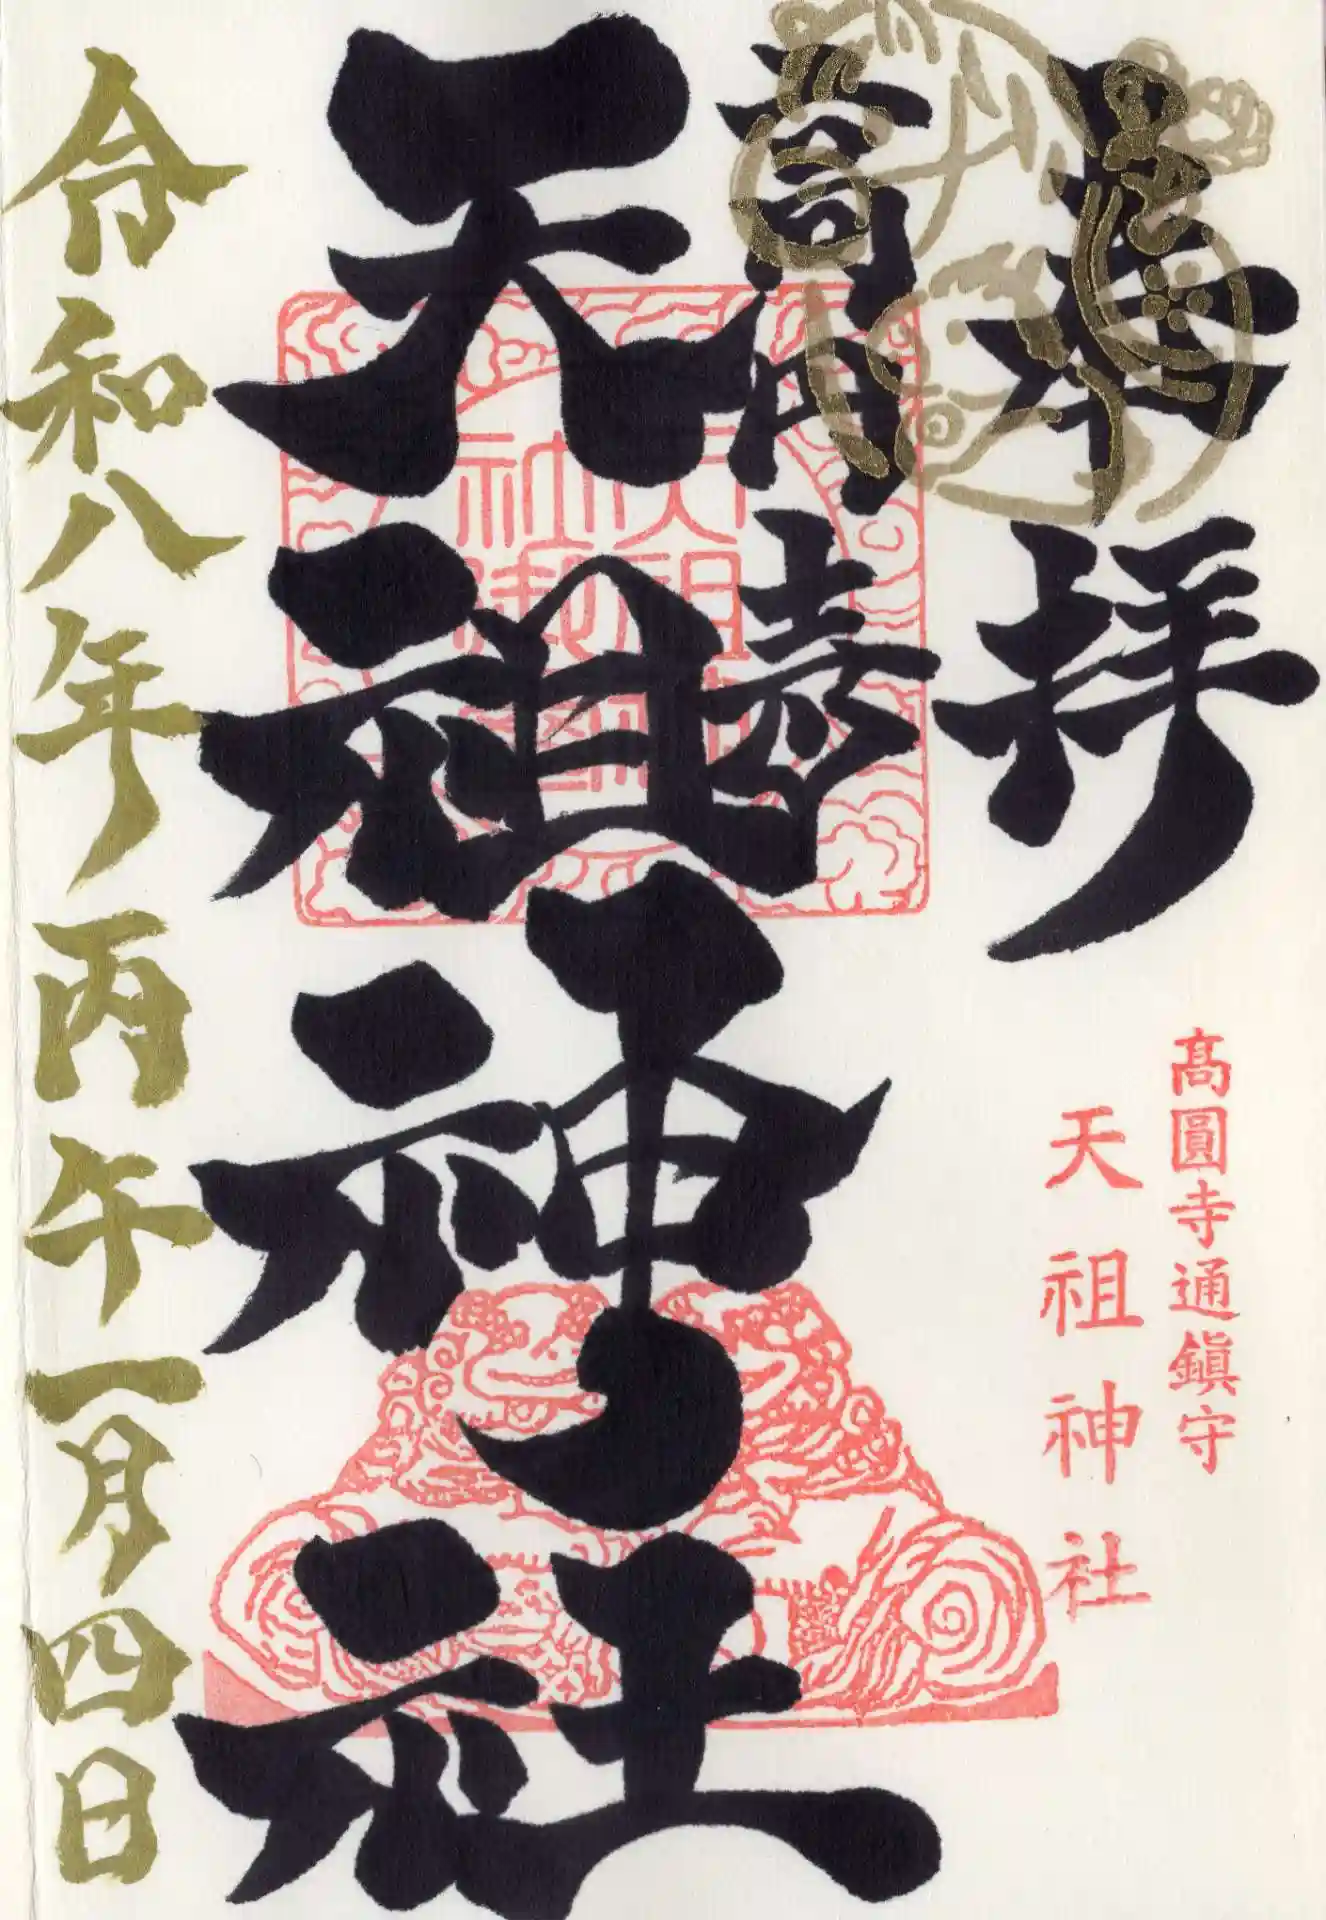 奉拝
高円寺
天祖神社
令和八年丙午一月四日
高圓寺通鎮守
天祖神社